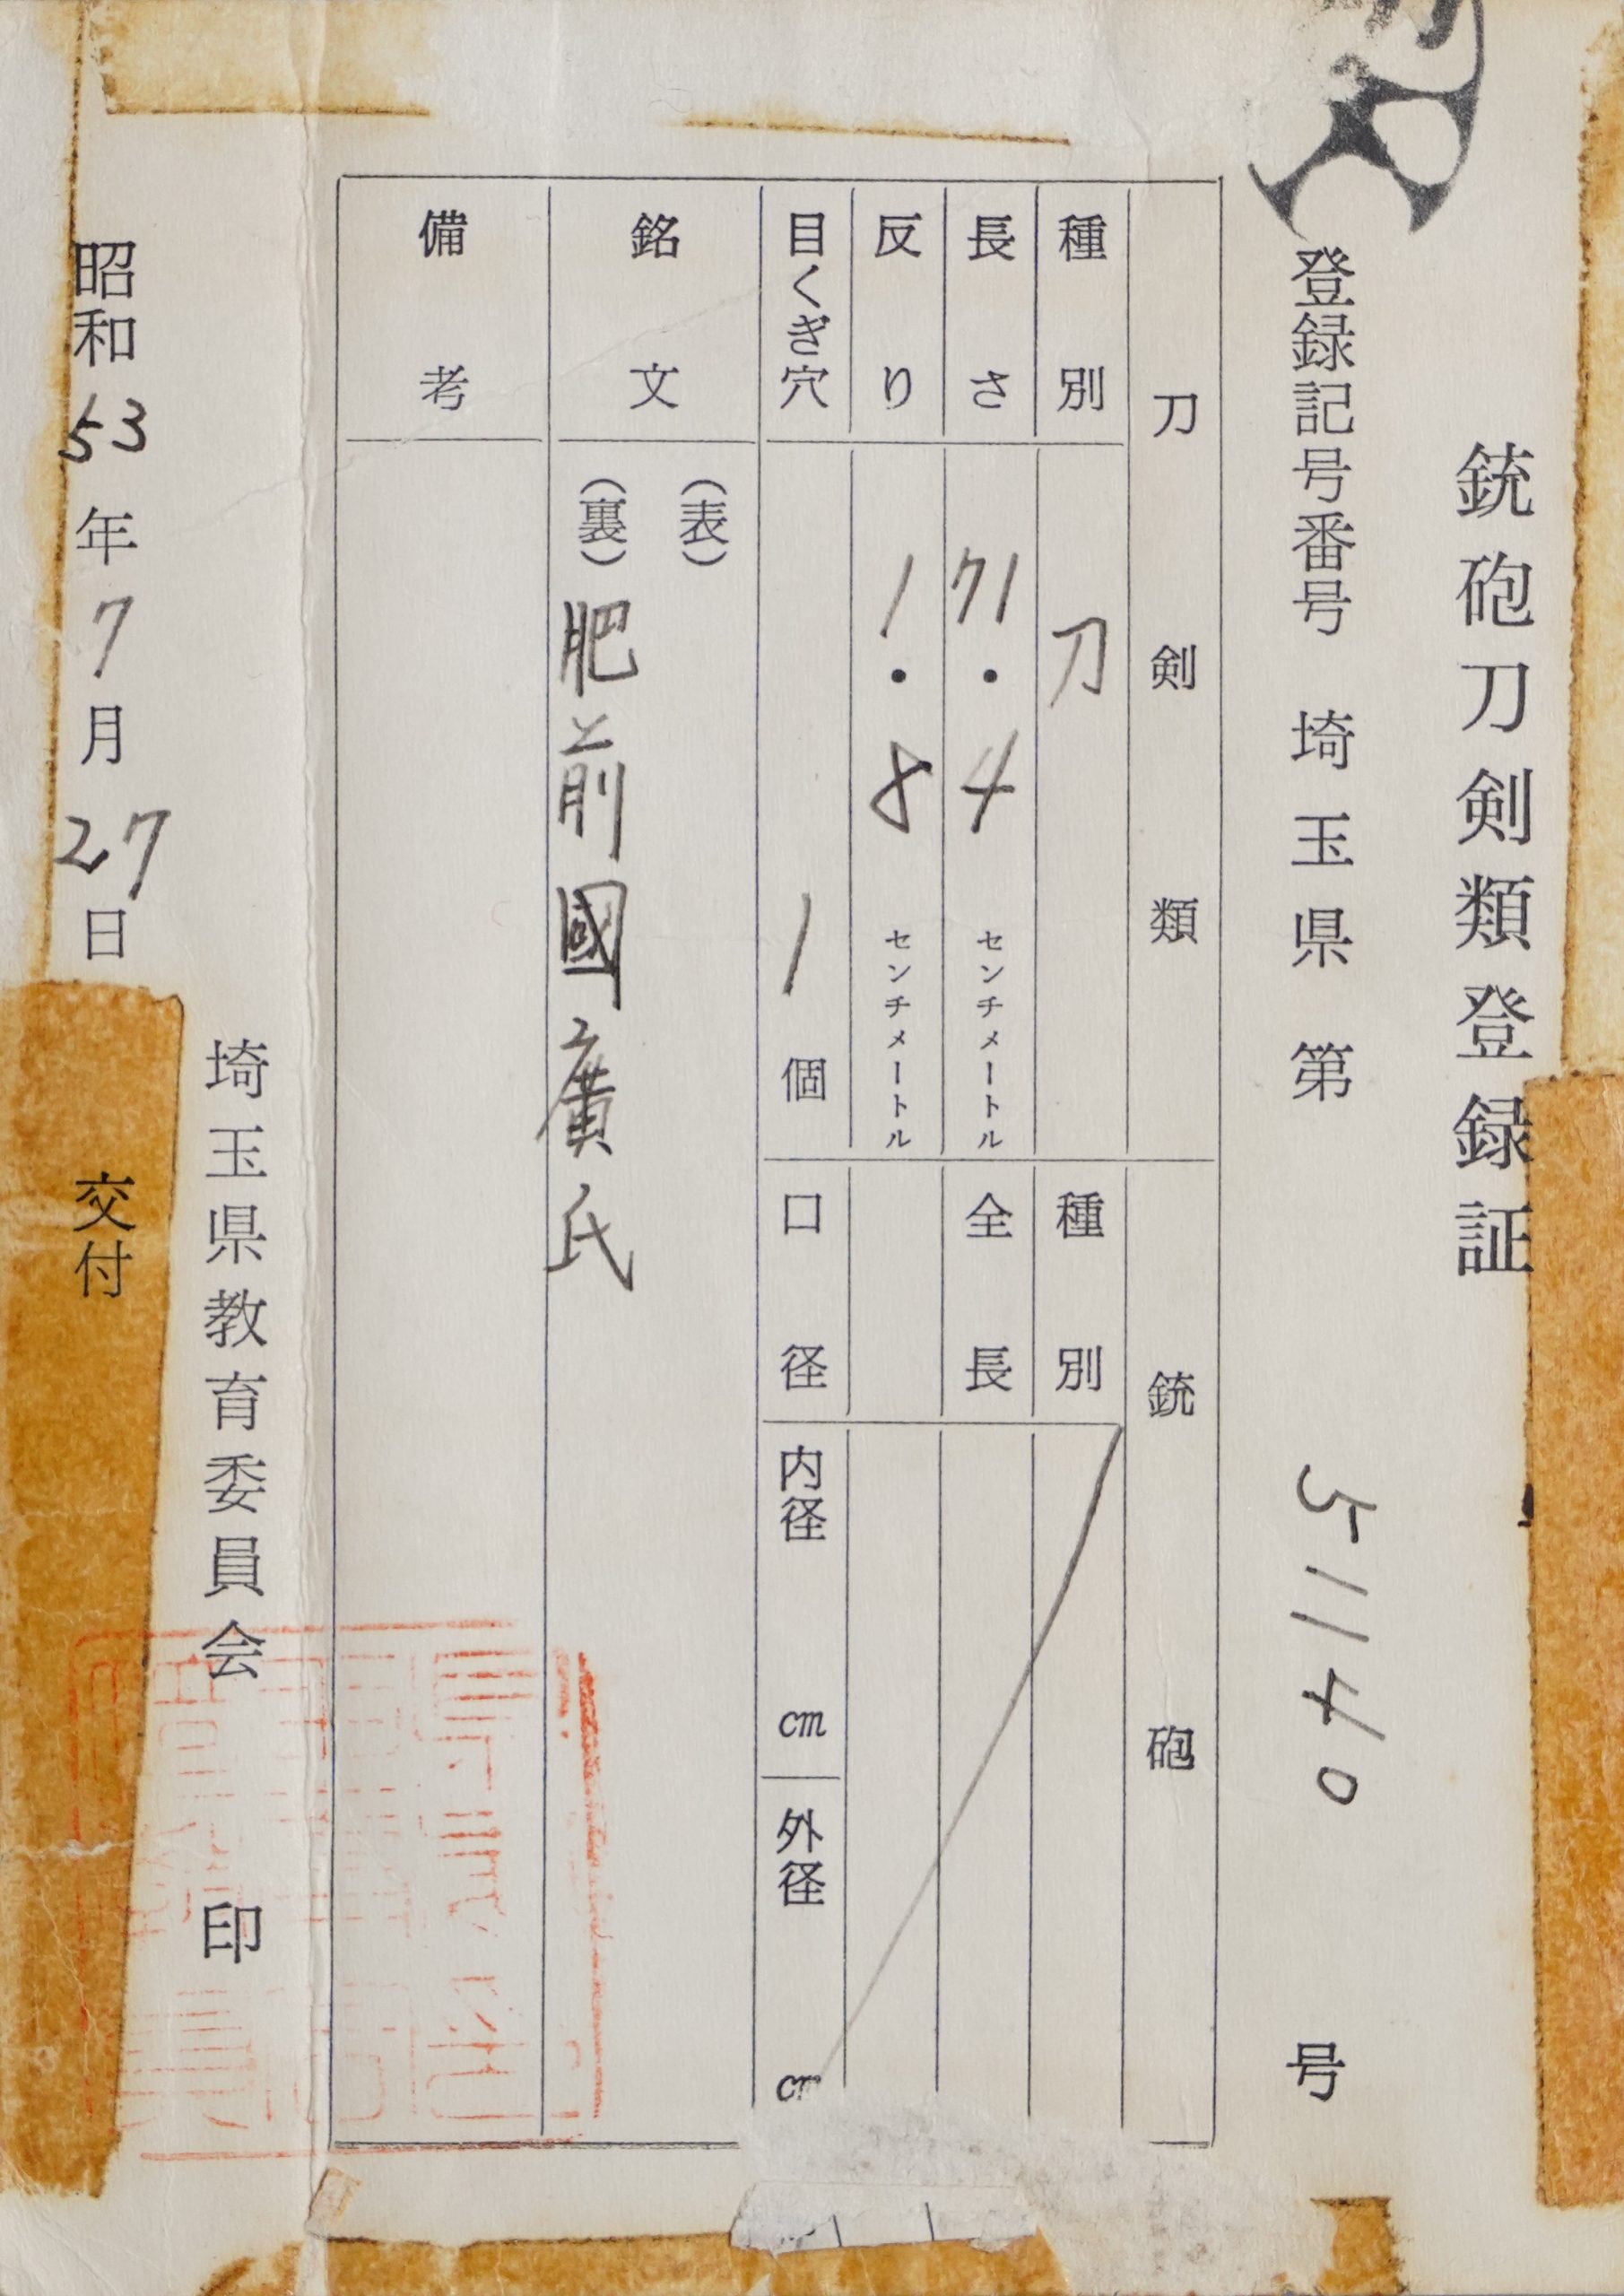 銃砲刀剣類登録証
登録記号番号 埼玉県 第 51140 号
刀剣類
種別 刀
長さ 71.4 センチメートル
反り 1.8 センチメートル
目くぎ穴 1 個
銃砲
種別
全長
口径 内径 cm 外径 cm
銘文 (表)
(裏) 肥前國廣氏
備考
埼玉県教育委員会 印
昭和53年7月27日 交付